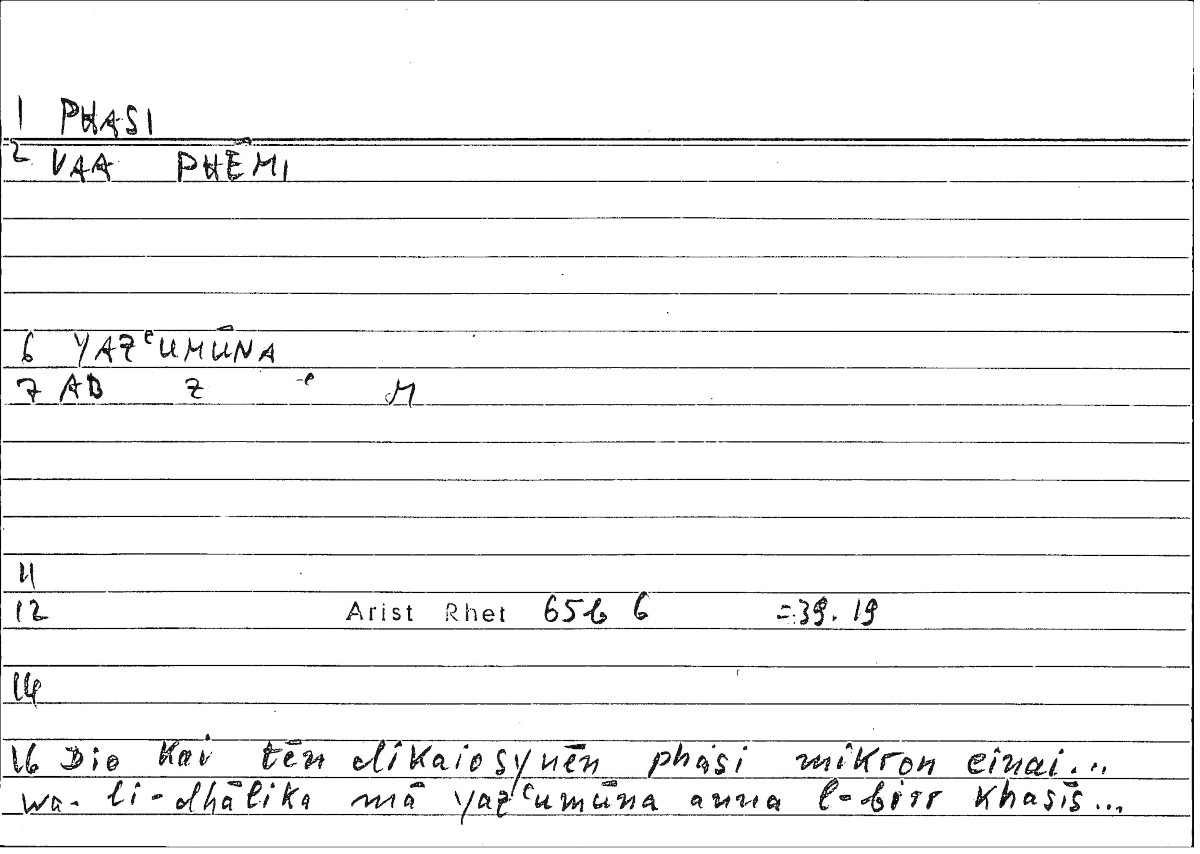 1 PHASI
2 VAA PHĒMI
6 YAZʿUMŪNA
7 AB Z ʿ M
11
12 Arist Rhet 65b 6 =39.19
14
16 Dio kai tēn dikaiosynēn phasi mikron einai...
wa-li-dhālika mā yazʿumūna anna l-birr khasīs...